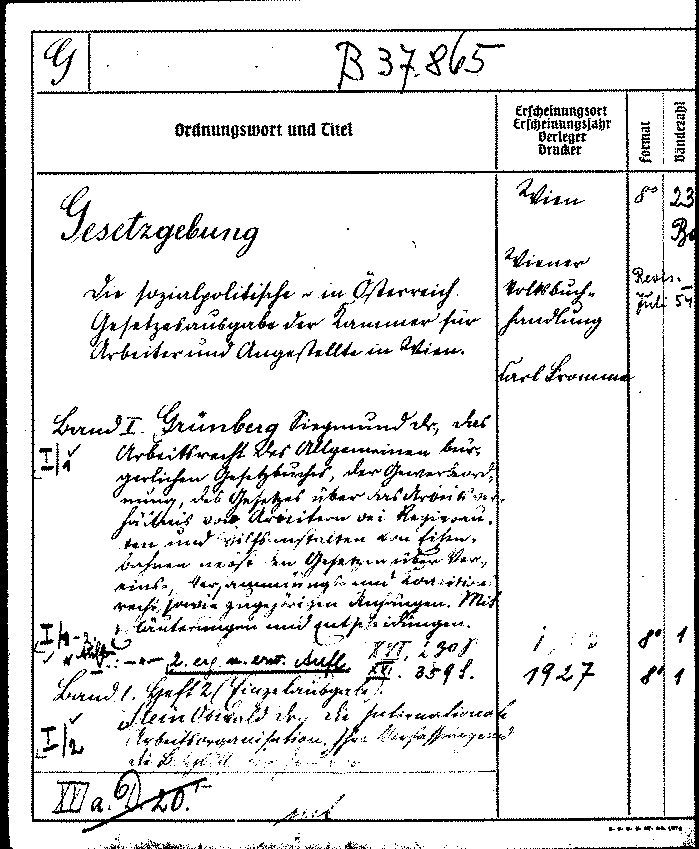 G
B 37.865
Ordnungswort und Titel
Erscheinungsort
Erscheinungsjahr
Verleger
Drucker
Format
Bändezahl
Gesetzgebung
Wien
8°
23
Die sozialpolitische - in Österreich.
Gesetzesausgabe der Kammer für
Arbeiter und Angestellte in Wien.
Wiener
Volksbuch-
handlung
Revis.
Juli 54
Carl Fromme
Band I. Grünberg Siegmund Dr, das
I/1
Arbeitsrecht des Allgemeinen bür-
gerlichen Gesetzbuches, der Gewerbeord-
nung, des Gesetzes über das Arbeitsver-
hältnis von Arbeitern bei Regiebau-
ten und Hilfsanstalten von Eisen-
bahnen nebst den Gesetzen über Ver-
eins-, Versammlungs- und Koalitions-
recht sowie zugehörigen Anhängen. Mit
Erläuterungen und Entscheidungen.
XVI, 230 S.
8° 1
2. erg. u. erw. Aufl.
XVI. 359 S.
1927
8° 1
Band 1. Heft 2 (Einzelausgabe).
I/2
Stein Oswald Dr, die Internationale
Arbeitsorganisation. Ihre Verfassung und
XV a. D. 20.